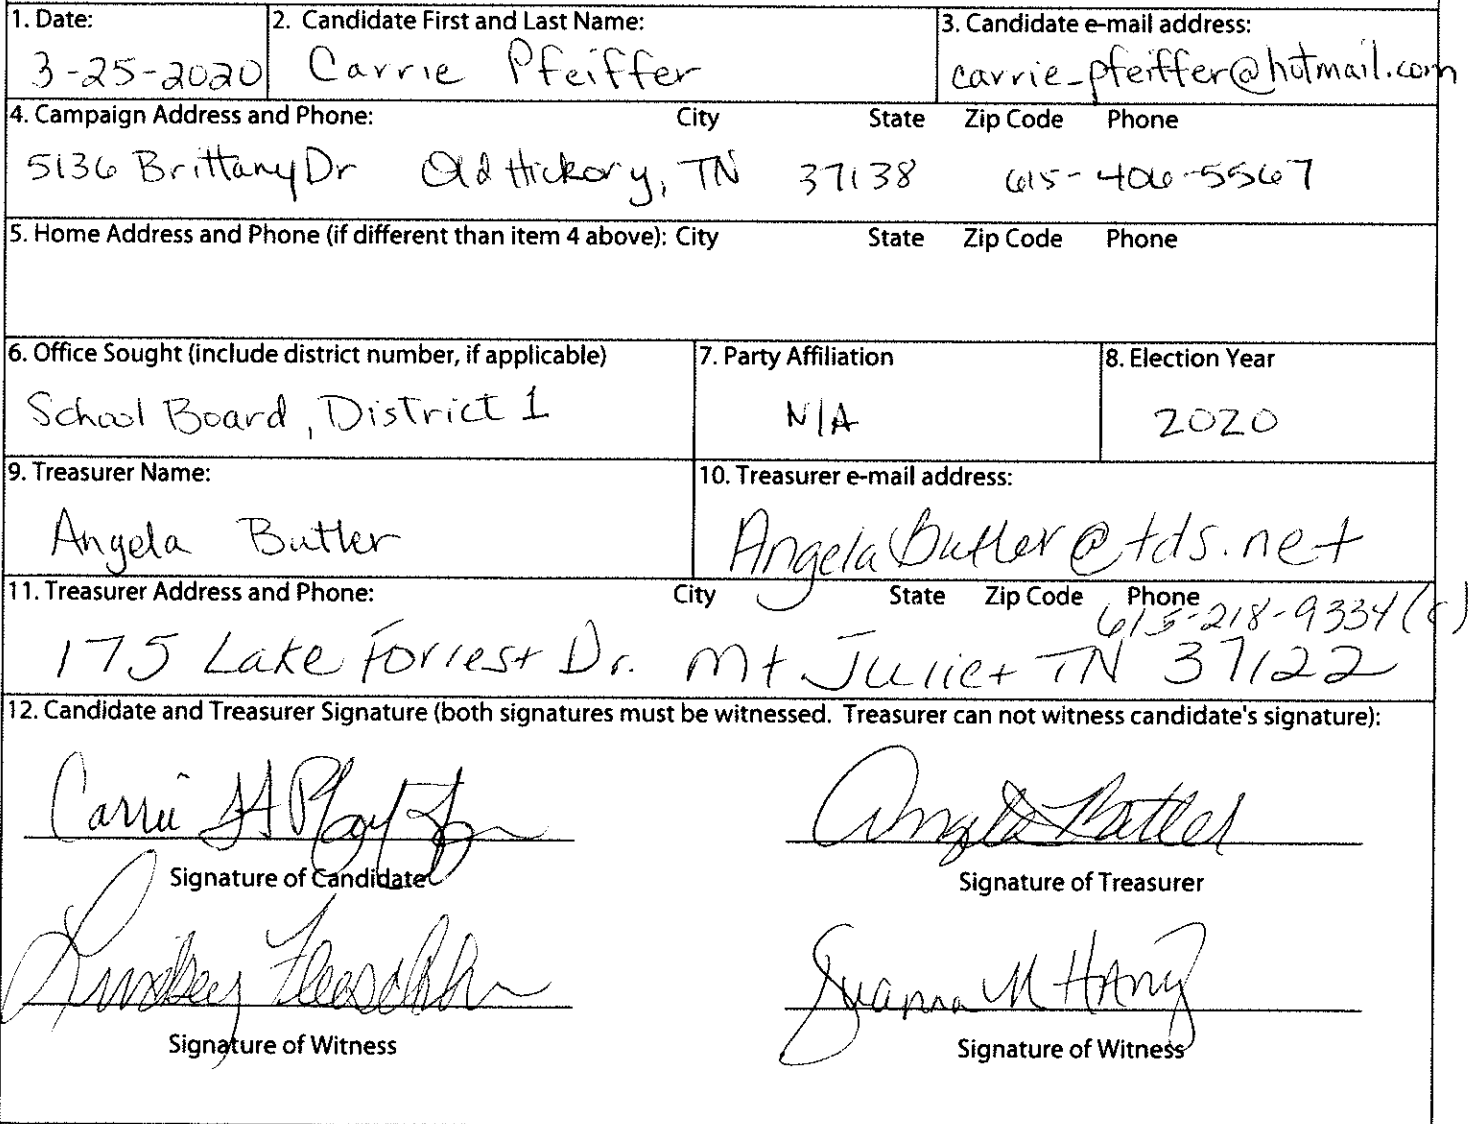 1. Date: 2. Candidate First and Last Name: 3. Candidate e-mail address:
3-25-2020 Carrie Pfeiffer carrie_pfeiffer@hotmail.com
4. Campaign Address and Phone: City State Zip Code Phone
5136 Brittany Dr Old Hickory, TN 37138 615-406-5567
5. Home Address and Phone (if different than item 4 above): City State Zip Code Phone
6. Office Sought (include district number, if applicable) 7. Party Affiliation 8. Election Year
School Board, District 1 N/A 2020
9. Treasurer Name: 10. Treasurer e-mail address:
Angela Butler AngelaButler@tds.net
11. Treasurer Address and Phone: City State Zip Code Phone
615-218-9334 (c)
175 Lake Forrest Dr. Mt Juliet TN 37122
12. Candidate and Treasurer Signature (both signatures must be witnessed. Treasurer can not witness candidate's signature):
Carrie Angela Butler
Signature of Candidate Signature of Treasurer
Lindsey
Signature of Witness Signature of Witness